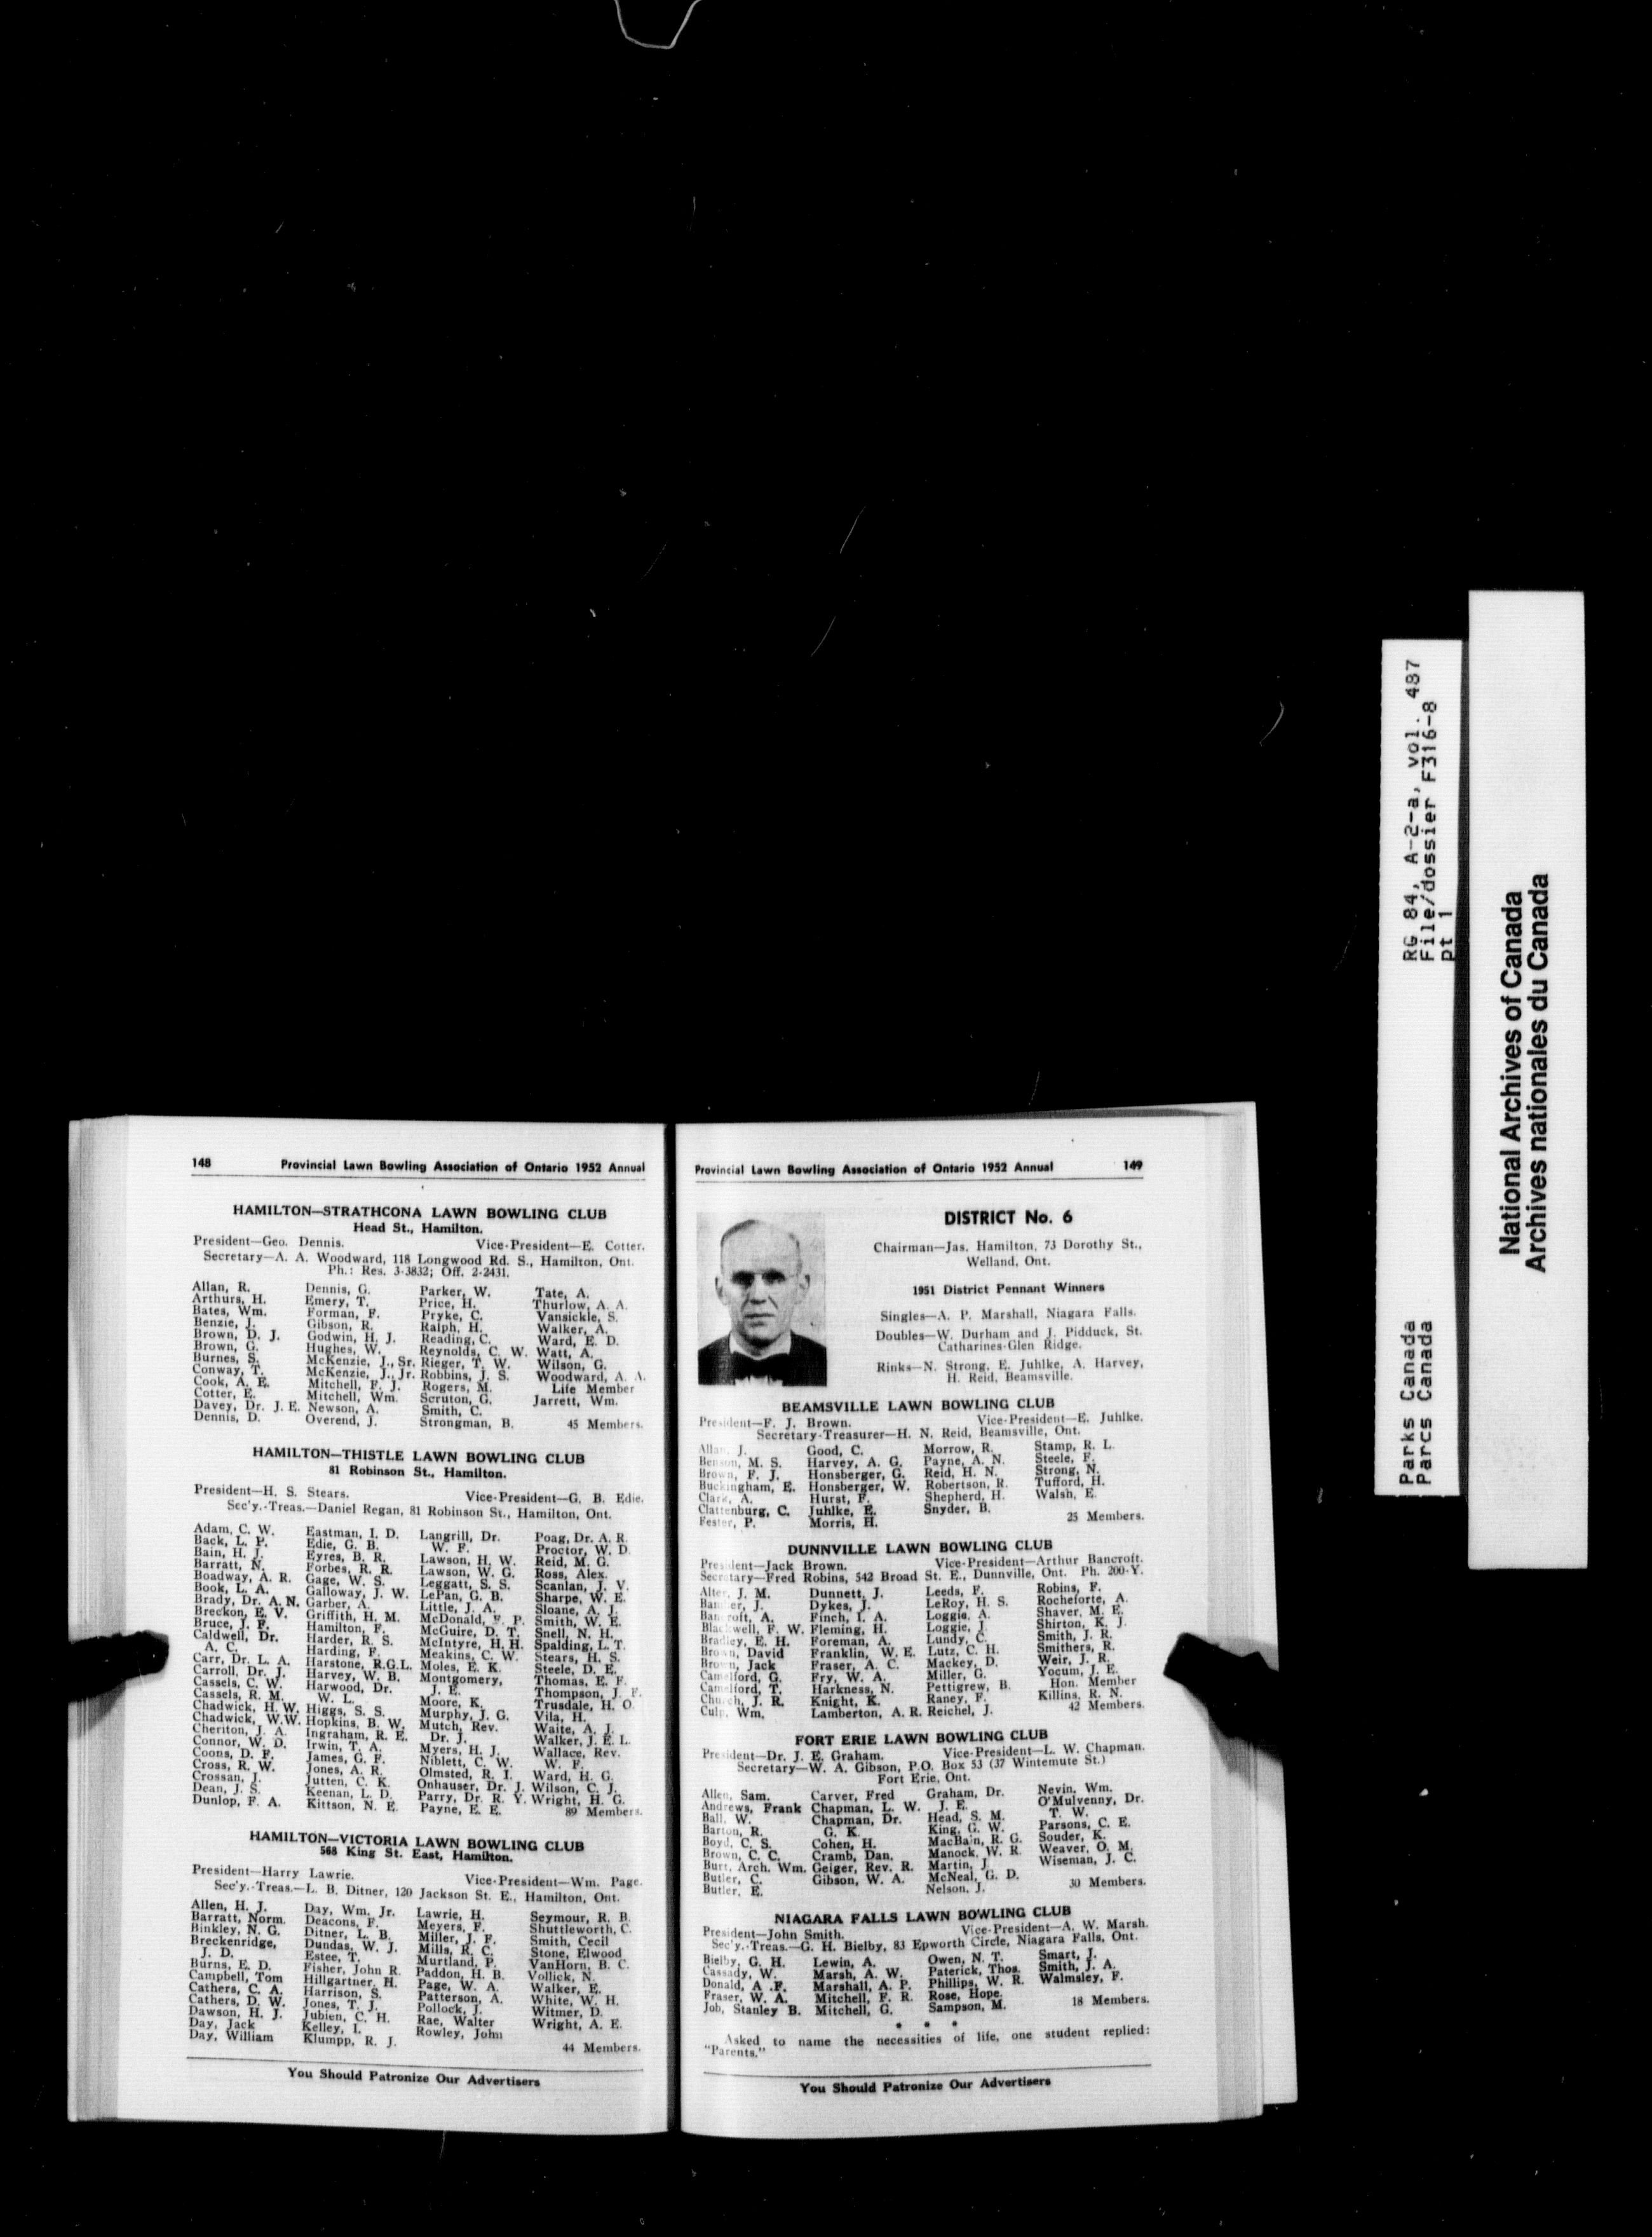 148 Provincial Lawn Bowling Association of Ontario 1952 Annual
HAMILTON—STRATHCONA LAWN BOWLING CLUB
Head St., Hamilton.
President—Geo. Dennis. Vice-President—E. Cotter.
Secretary—A. A. Woodward, 118 Longwood Rd. S., Hamilton, Ont.
Ph.: Res. 3-3832; Off. 2-2431.
Allan, R.
Arthurs, H.
Bates, Wm.
Benzie, J.
Brown, D. J.
Brown, G.
Burnes, S.
Conway, T.
Cook, A. E.
Cotter, E.
Davey, Dr. J. E.
Dennis, D.
Dennis, G.
Emery, T.
Forman, F.
Gibson, R.
Godwin, H. J.
Hughes, W.
McKenzie, J., Sr.
McKenzie, J., Jr.
Mitchell, F. J.
Mitchell, Wm.
Newson, A.
Overend, J.
Parker, W.
Price, H.
Pryke, C.
Ralph, H.
Reading, C.
Reynolds, C. W.
Rieger, T. W.
Robbins, J. S.
Rogers, M.
Scruton, G.
Smith, C.
Strongman, B.
Tate, A.
Thurlow, A. A.
Vansickle, S.
Walker, A.
Ward, E. D.
Watt, A.
Wilson, G.
Woodward, A. A.
Life Member
Jarrett, Wm.
45 Members.
HAMILTON—THISTLE LAWN BOWLING CLUB
81 Robinson St., Hamilton.
President—H. S. Stears. Vice-President—G. B. Edie.
Sec'y.-Treas.—Daniel Regan, 81 Robinson St., Hamilton, Ont.
Adam, C. W.
Back, L. P.
Bain, H. J.
Barratt, N.
Boadway, A. R.
Book, L. A.
Brady, Dr. A. N.
Breckon, E. V.
Bruce, J. F.
Caldwell, Dr.
A. C.
Carr, Dr. L. A.
Carroll, Dr. J.
Cassels, C. W.
Cassels, R. M.
Chadwick, H. W.
Chadwick, W.W.
Cheriton, J. A.
Connor, W. D.
Coons, D. F.
Cross, R. W.
Crossan, J.
Dean, J. S.
Dunlop, F. A.
Eastman, I. D.
Edie, G. B.
Eyres, B. R.
Forbes, R. R.
Gage, W. S.
Galloway, J. W.
Garber, A.
Griffith, H. M.
Hamilton, F.
Harder, R. S.
Harding, F.
Harstone, R.G.L.
Harvey, W. B.
Harwood, Dr.
W. L.
Higgs, S. S.
Hopkins, B. W.
Ingraham, R. E.
Irwin, T. A.
James, G. F.
Jones, A. R.
Jutten, C. K.
Keenan, L. D.
Kittson, N. E.
Langrill, Dr.
W. F.
Lawson, H. W.
Lawson, W. G.
Leggatt, S. S.
LePan, G. B.
Little, J. A.
McDonald, P.
McGuire, D. T.
McIntyre, H. H.
Meakins, C. W.
Moles, E. K.
Montgomery,
J. E.
Moore, K.
Murphy, J. G.
Mutch, Rev.
Dr. J.
Myers, H. J.
Niblett, C. W.
Olmsted, R. I.
Onhauser, Dr. J.
Parry, Dr. R. Y.
Payne, E. E.
Poag, Dr. A. R.
Proctor, W. D.
Reid, M. G.
Ross, Alex.
Scanlan, J. V.
Sharpe, W. E.
Sloane, A. J.
Smith, W. E.
Snell, N. H.
Spalding, L. T.
Stears, H. S.
Steele, D. E.
Thomas, E. F.
Thompson, J. F.
Trusdale, H. O.
Vila, H.
Waite, A. J.
Walker, J. E. L.
Wallace, Rev.
W. F.
Ward, H. G.
Wilson, C. J.
Wright, H. G.
89 Members.
HAMILTON—VICTORIA LAWN BOWLING CLUB
568 King St. East, Hamilton.
President—Harry Lawrie. Vice-President—Wm. Page.
Sec'y.-Treas.—L. B. Ditner, 120 Jackson St. E., Hamilton, Ont.
Allen, H. J.
Barratt, Norm.
Binkley, N. G.
Breckenridge,
J. D.
Burns, E. D.
Campbell, Tom
Cathers, C. A.
Cathers, D. W.
Dawson, H. J.
Day, Jack
Day, William
Day, Wm. Jr.
Deacons, F.
Ditner, L. B.
Dundas, W. J.
Estee, T.
Fisher, John R.
Hillgartner, H.
Harrison, S.
Jones, T. J.
Jubien, C. H.
Kelley, I.
Klumpp, R. J.
Lawrie, H.
Meyers, F.
Miller, J. F.
Mills, R. C.
Murtland, P.
Paddon, H. B.
Page, W. A.
Patterson, A.
Pollock, J.
Rae, Walter
Rowley, John
Seymour, R. B.
Shuttleworth, C.
Smith, Cecil
Stone, Elwood
VanHorn, B. C.
Vollick, N.
Walker, E.
White, W. H.
Witmer, D.
Wright, A. E.
44 Members.
You Should Patronize Our Advertisers
Provincial Lawn Bowling Association of Ontario 1952 Annual 149
DISTRICT No. 6
Chairman—Jas. Hamilton, 73 Dorothy St.,
Welland, Ont.
1951 District Pennant Winners
Singles—A. P. Marshall, Niagara Falls.
Doubles—W. Durham and J. Pidduck, St.
Catharines-Glen Ridge.
Rinks—N. Strong, E. Juhlke, A. Harvey,
H. Reid, Beamsville.
BEAMSVILLE LAWN BOWLING CLUB
President—F. J. Brown. Vice-President—E. Juhlke.
Secretary-Treasurer—H. N. Reid, Beamsville, Ont.
Allan, J.
Benson, M. S.
Brown, F. J.
Buckingham, E.
Clark, A.
Clattenburg, C.
Fester, P.
Good, C.
Harvey, A. G.
Honsberger, G.
Honsberger, W.
Hurst, F.
Juhlke, E.
Morris, H.
Morrow, R.
Payne, A. N.
Reid, H. N.
Robertson, R.
Shepherd, H.
Snyder, B.
Stamp, R. L.
Steele, F.
Strong, N.
Tufford, H.
Walsh, E.
25 Members.
DUNNVILLE LAWN BOWLING CLUB
President—Jack Brown. Vice-President—Arthur Bancroft.
Secretary—Fred Robins, 542 Broad St. E., Dunnville, Ont. Ph. 200-Y.
Alter, J. M.
J.
Bancroft, A.
Blackwell, F. W.
Bradley, E. H.
Brown, David
Brown, Jack
Camelford, G.
Camelford, T.
Church, J. R.
Culp, Wm.
Dunnett, J.
Dykes, J.
Finch, I. A.
Fleming, H.
Foreman, A.
Franklin, W. E.
Fraser, A. C.
Fry, W. A.
Harkness, N.
Knight, K.
Lamberton, A. R.
Leeds, F.
LeRoy, H. S.
Loggie, A.
Loggie, J.
Lundy, C.
Lutz, C. H.
Mackey, D.
Miller, G.
Pettigrew, B.
Raney, F.
Reichel, J.
Robins, F.
Rocheforte, A.
Shaver, M. E.
Shirton, K. J.
Smith, J. R.
Smithers, R.
Weir, J. R.
Yocum, J. E.
Hon. Member
Killins, R. N.
42 Members.
FORT ERIE LAWN BOWLING CLUB
President—Dr. J. E. Graham. Vice-President—L. W. Chapman.
Secretary—W. A. Gibson, P.O. Box 53 (37 Wintemute St.)
Fort Erie, Ont.
Allen, Sam.
Andrews, Frank
Ball, W.
Barton, R.
Boyd, C. S.
Brown, C. C.
Burt, Arch. Wm.
Butler, C.
Butler, E.
Carver, Fred
Chapman, L. W.
Chapman, Dr.
G. K.
Cohen, H.
Cramb, Dan.
Geiger, Rev. R.
Gibson, W. A.
Graham, Dr.
J. E.
Head, S. M.
King, G. W.
MacBain, R. G.
Manock, W. R.
Martin, J
McNeal, G. D.
Nelson, J.
Nevin, Wm.
O'Mulvenny, Dr.
T. W.
Parsons, C. E.
Souder, K.
Weaver, O. M.
Wiseman, J. C.
30 Members.
NIAGARA FALLS LAWN BOWLING CLUB
President—John Smith. Vice-President—A. W. Marsh.
Sec'y.-Treas.—G. H. Bielby, 83 Epworth Circle, Niagara Falls, Ont.
Bielby, G. H.
Cassady, W.
Donald, A .F.
Fraser, W. A.
Job, Stanley B.
Lewin, A.
Marsh, A. W.
Marshall, A. P.
Mitchell, F. R.
Mitchell, G.
Owen, N. T.
Paterick, Thos.
Phillips, W. R.
Rose, Hope.
Sampson, M.
Smart, J.
Smith, J. A.
Walmsley, F.
18 Members.
* * *
Asked to name the necessities of life, one student replied:
"Parents."
You Should Patronize Our Advertisers
RG 84, A-2-a, vol. 487
File/dossier F316-8
pt 1
Parks Canada
Parcs Canada
National Archives of Canada
Archives nationales du Canada